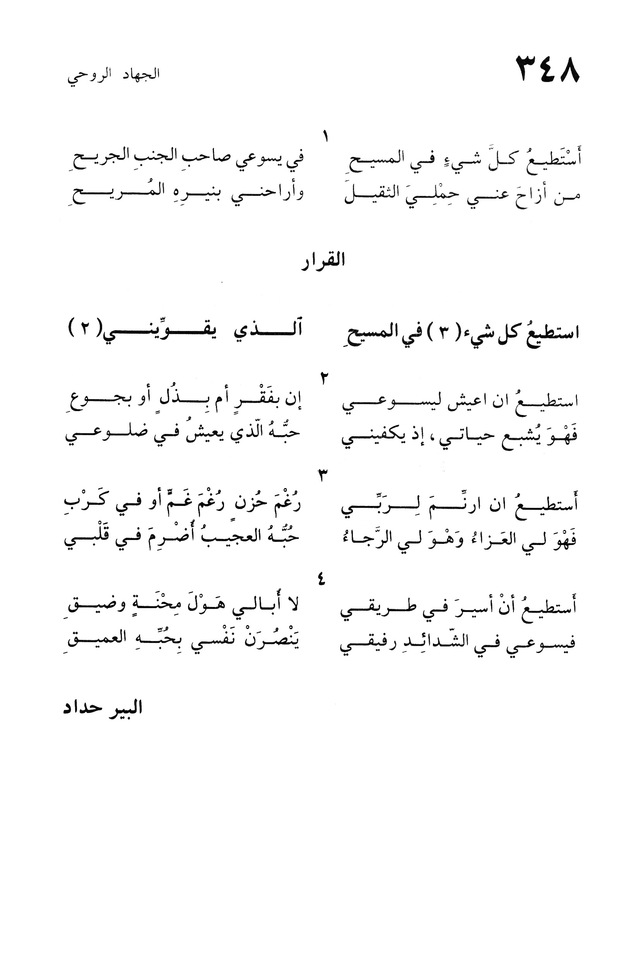 ٣٤٨
الجهاد الروحي
١
أَسْتَطيـعُ كـلَّ شـيءٍ فـي المسيـحِ في يسوعي صاحبِ الجنبِ الجريـحِ
مـن أزاحَ عنـي حِمْلِـيَ الثقيـلَ وأراحنـي بنيـرِهِ المُـريـحِ
القرار
استطيعُ كل شيء ( ٣ ) في المسيحِ ألـذي يقـوِّينـي ( ٢ )
٢
استطيـعُ ان اعيش ليسـوعـي إن بفَقْـرٍ أم بِـذُلٍ أو بجـوعِ
فَهْوَ يُشبع حياتـي ، إذ يكفينـي حبُّهُ الّذي يعيشُ فـي ضلـوعي
٣
أَستطيعُ ان ارنِّـمَ لِـرَبِّـي رُغْمَ حُزنٍ رُغْمَ غَمٍّ أو فـي كَـرْبِ
فَهْوَ لـي العـزاءُ وَهْوَ لـي الرَّجاءُ حُبُّـهُ العجيـبُ أُضْرِمَ فـي قَلْبـي
٤
أَستطيعُ أنْ أسيـرَ فـي طـريقـي لا أبـالـي هَـوْلَ مِحْنَـةٍ وضيـقِ
فيسـوعـي فـي الشّدائِـدِ رفيقـي يَنْصُرَنْ نَفْسـي بِحُبِّـهِ العميـقِ
البير حداد